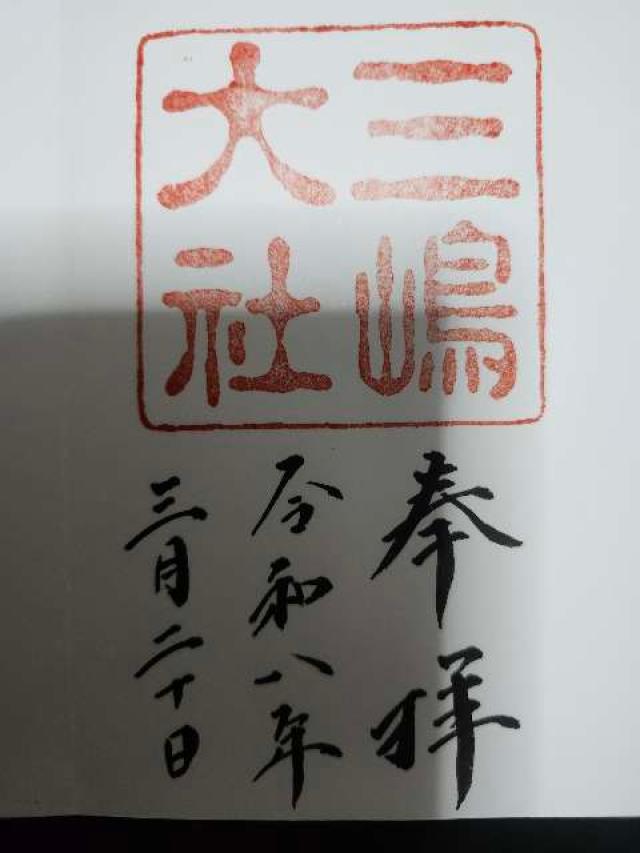 三嶋
大社
奉拝
令和八年
三月二十日